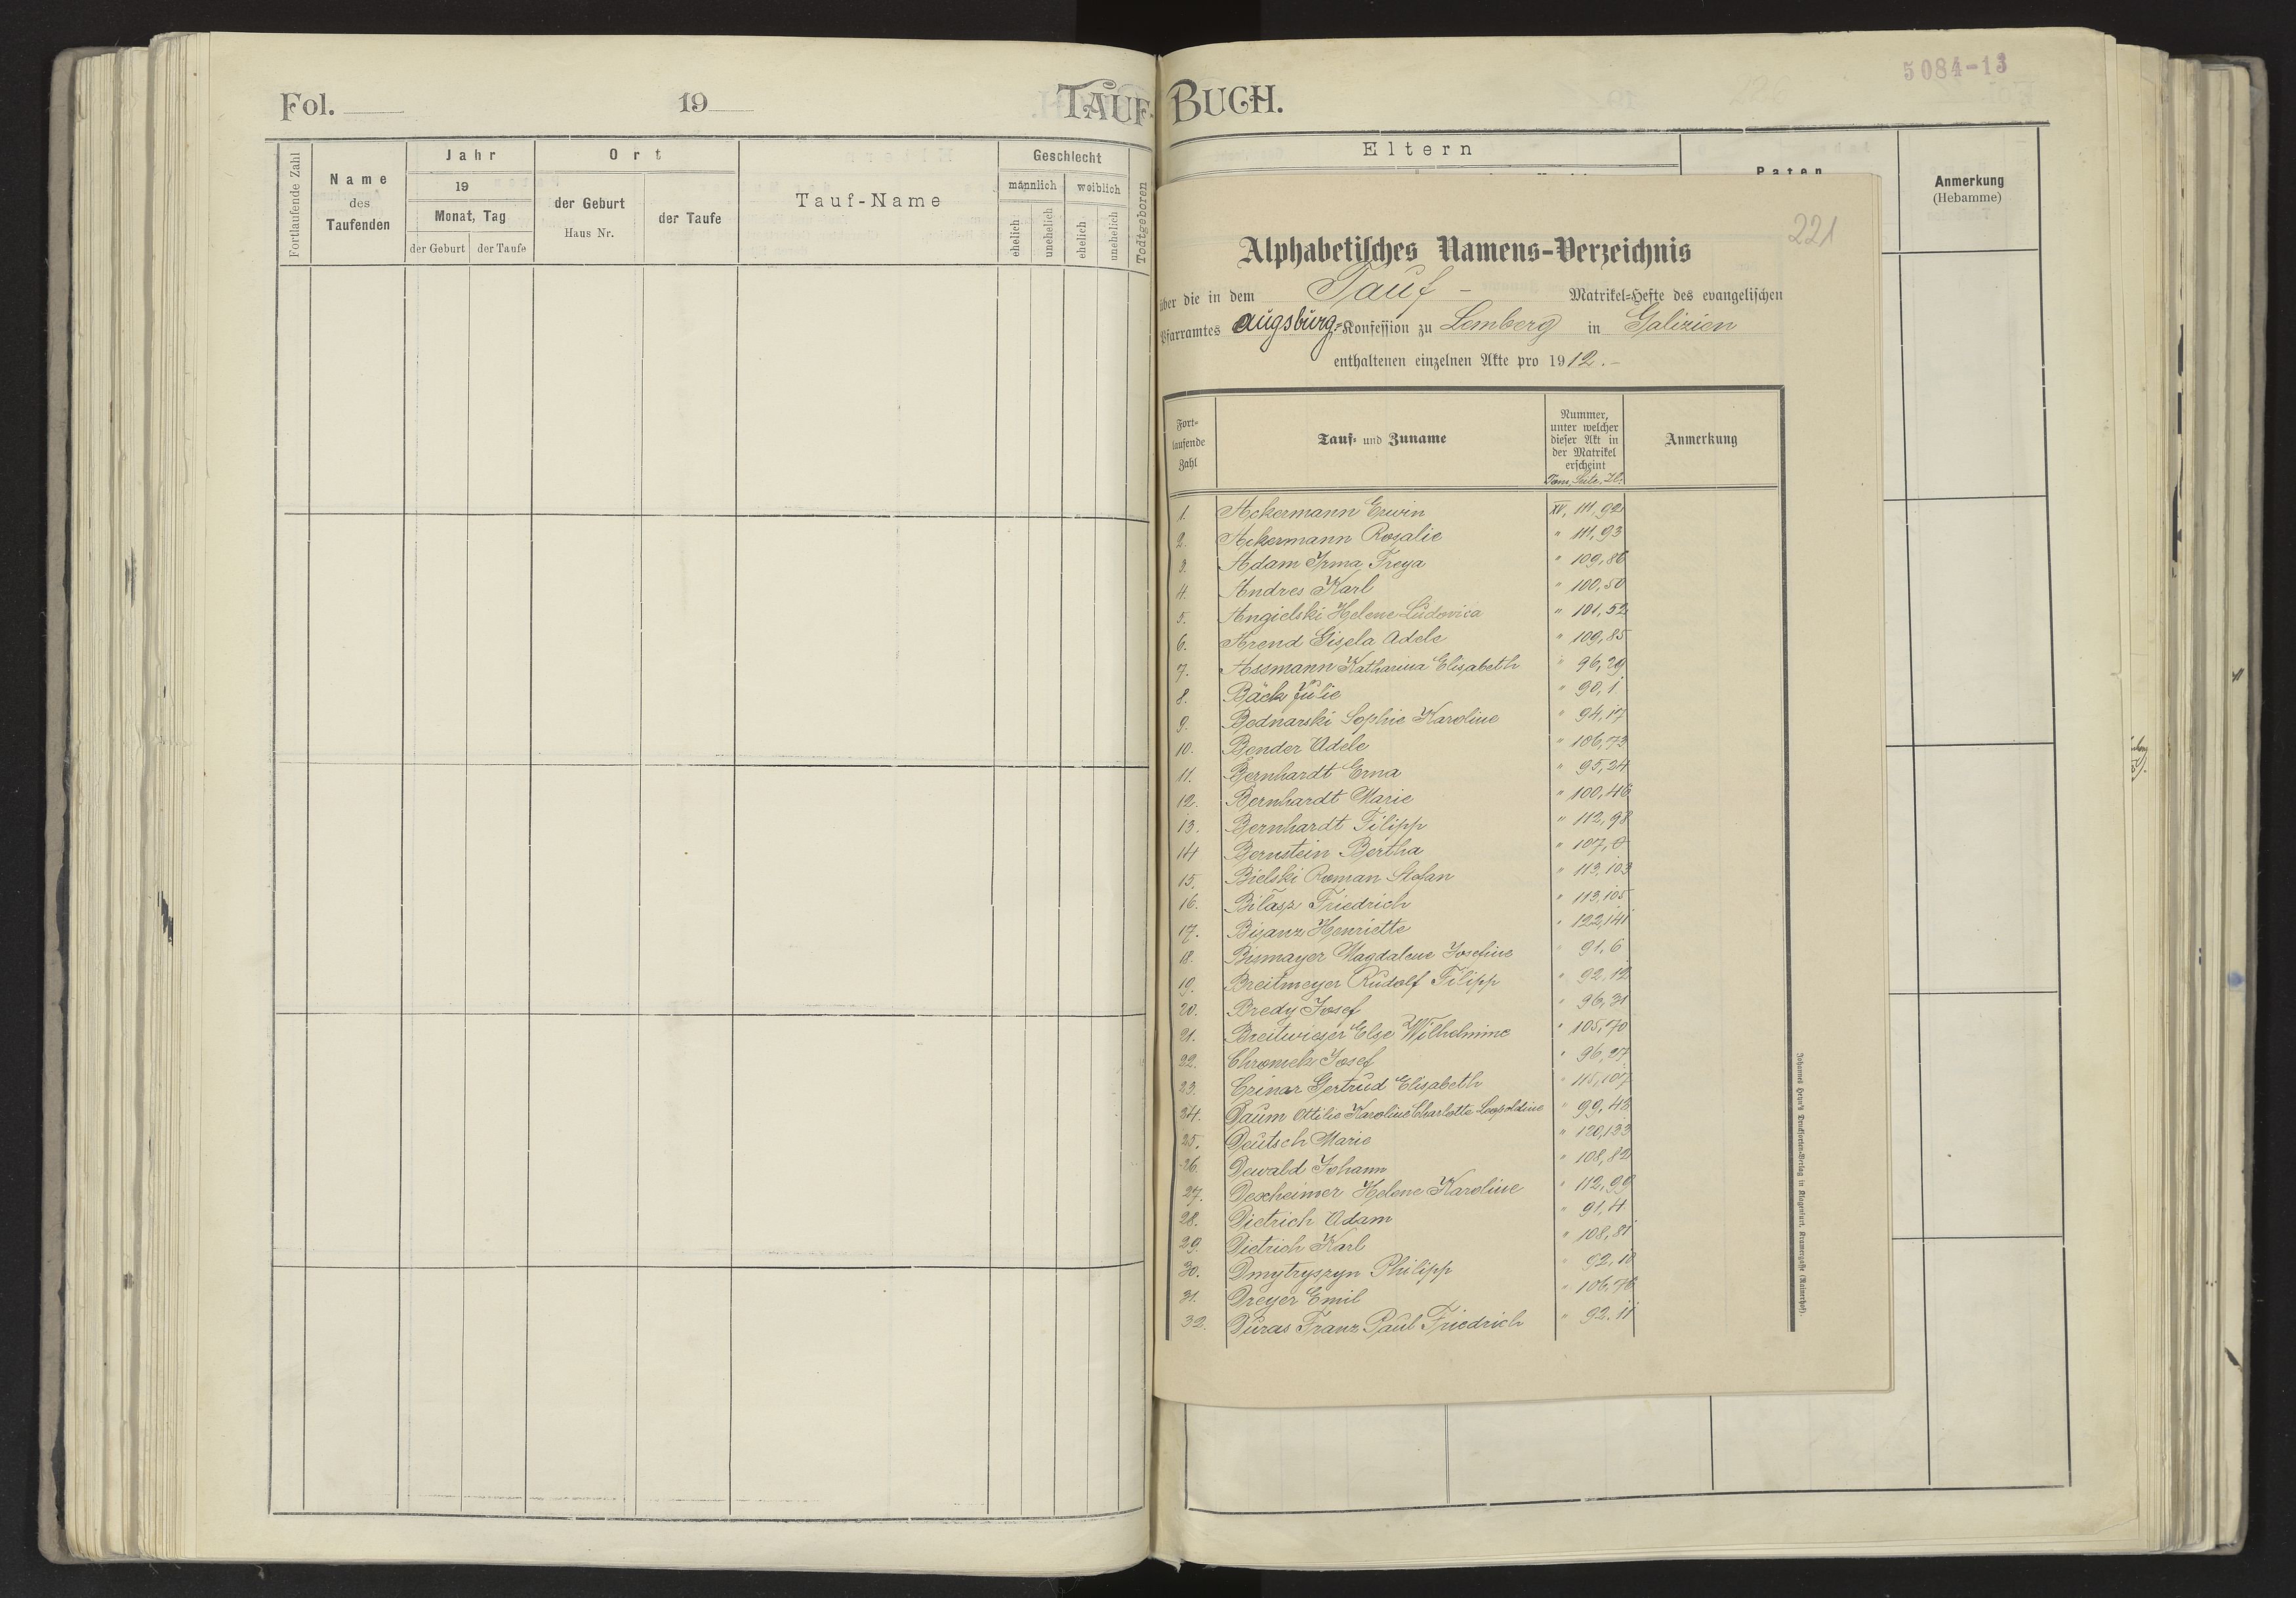 Fol. 19 TAUF-BUCH.
5084-13
Fortlaufende Zahl
Name des Taufenden
Jahr
19
Monat, Tag
der Geburt der Taufe
Ort
der Geburt
Haus Nr.
der Taufe
Tauf-Name
Geschlecht
männlich weiblich
ehelich unehelich ehelich unehelich
Todtgeboren
Eltern
Paten
Anmerkung
(Hebamme)
221
Alphabetisches Namens-Verzeichnis
über die in dem Tauf- Matrikel-Hefte des evangelischen
Pfarramtes Augsburg. Konfession zu Lemberg in Galizien
enthaltenen einzelnen Akte pro 1912.-
Fort-
laufende
Zahl
Tauf- und Zuname
Nummer,
unter welcher
dieser Akt in
der Matrikel
erscheint
Tom, Seite, Zl.
Anmerkung
1. Ackermann Erwin XV, 111,92
2. Ackermann Rosalie " 111,93
3. Adam Irma Freya " 109,86
4. Andres Karl " 100,50
5. Angielski Helene Ludovica " 101,52
6. Arend Gisela Adele " 109,85
7. Assmann Katharina Elisabeth " 96,29
8. Bäck Julie " 90,1
9. Bednarski Sophie Karoline " 94,17
10. Bender Adele " 106,73
11. Bernhardt Erna " 95,24
12. Bernhardt Marie " 100,46
13. Bernhardt Filipp " 112,98
14 Bernstein Bertha " 107,
15. Bielski Roman Stefan " 113,103
16. Bilasz Friedrich " 113,105
17. Bisanz Henriette " 122,141
18. Bismayer Magdalene Josefine " 91,6
19. Breitmeyer Rudolf Filipp " 92,12
20. Bredy Josef " 96,31
21. Breitwieser Else Wilhelmine " 105,70
22. Chromek Josef " 96,27
23. Crinar Gertrud Elisabeth " 115,107
24. Daum Ottilie Karoline Charlotte Leopoldine " 99,43
25. Deutsch Marie " 120,133
26. Dewald Johann " 108,82
27. Dexheimer Helene Karoline " 112,99
28. Dietrich Adam " 91,4
29. Dietrich Karl " 108,81
30. Dmytryszyn Philipp " 92,10
31. Dreyer Emil " 106,76
32. Duras Franz Paul Friedrich " 92.11
Johannes Heyn's Drucksorten-Verlag in Klagenfurt, Kramergasse (Rainerhof).